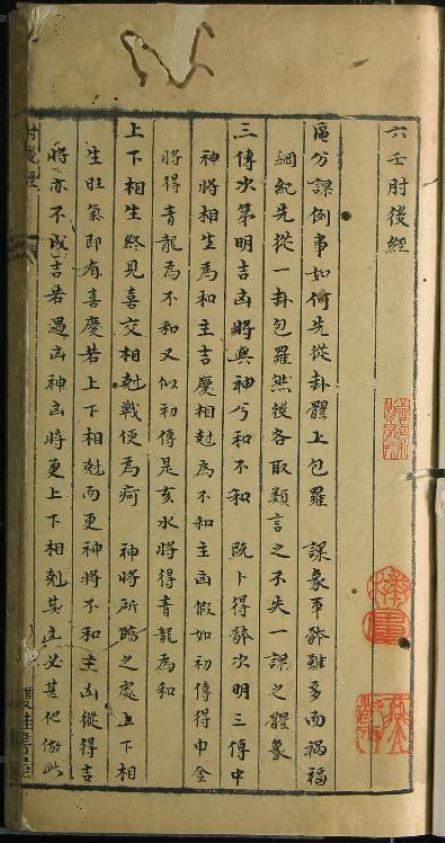 六壬肘後經
區分課例事如何先從卦體上包羅　課象事雖多而禍福
綱紀先從一卦包羅然後各取類言之不失一課之體象
三傳次第明吉凶將與神兮和不和　既卜得課次明三傳中
神將相生為和主吉慶相尅為不和主凶假如初傳得申金
將得青龍為不和又似初傳是亥水將得青龍為和
上下相生終見喜交相尅戰便為疴　神將所臨之處上下相
生旺氣即有喜慶若上下相尅而更神將不和主凶縱得吉
將亦不成吉若遇凶神凶將更上下相尅其凶必甚他倣此
肘後經